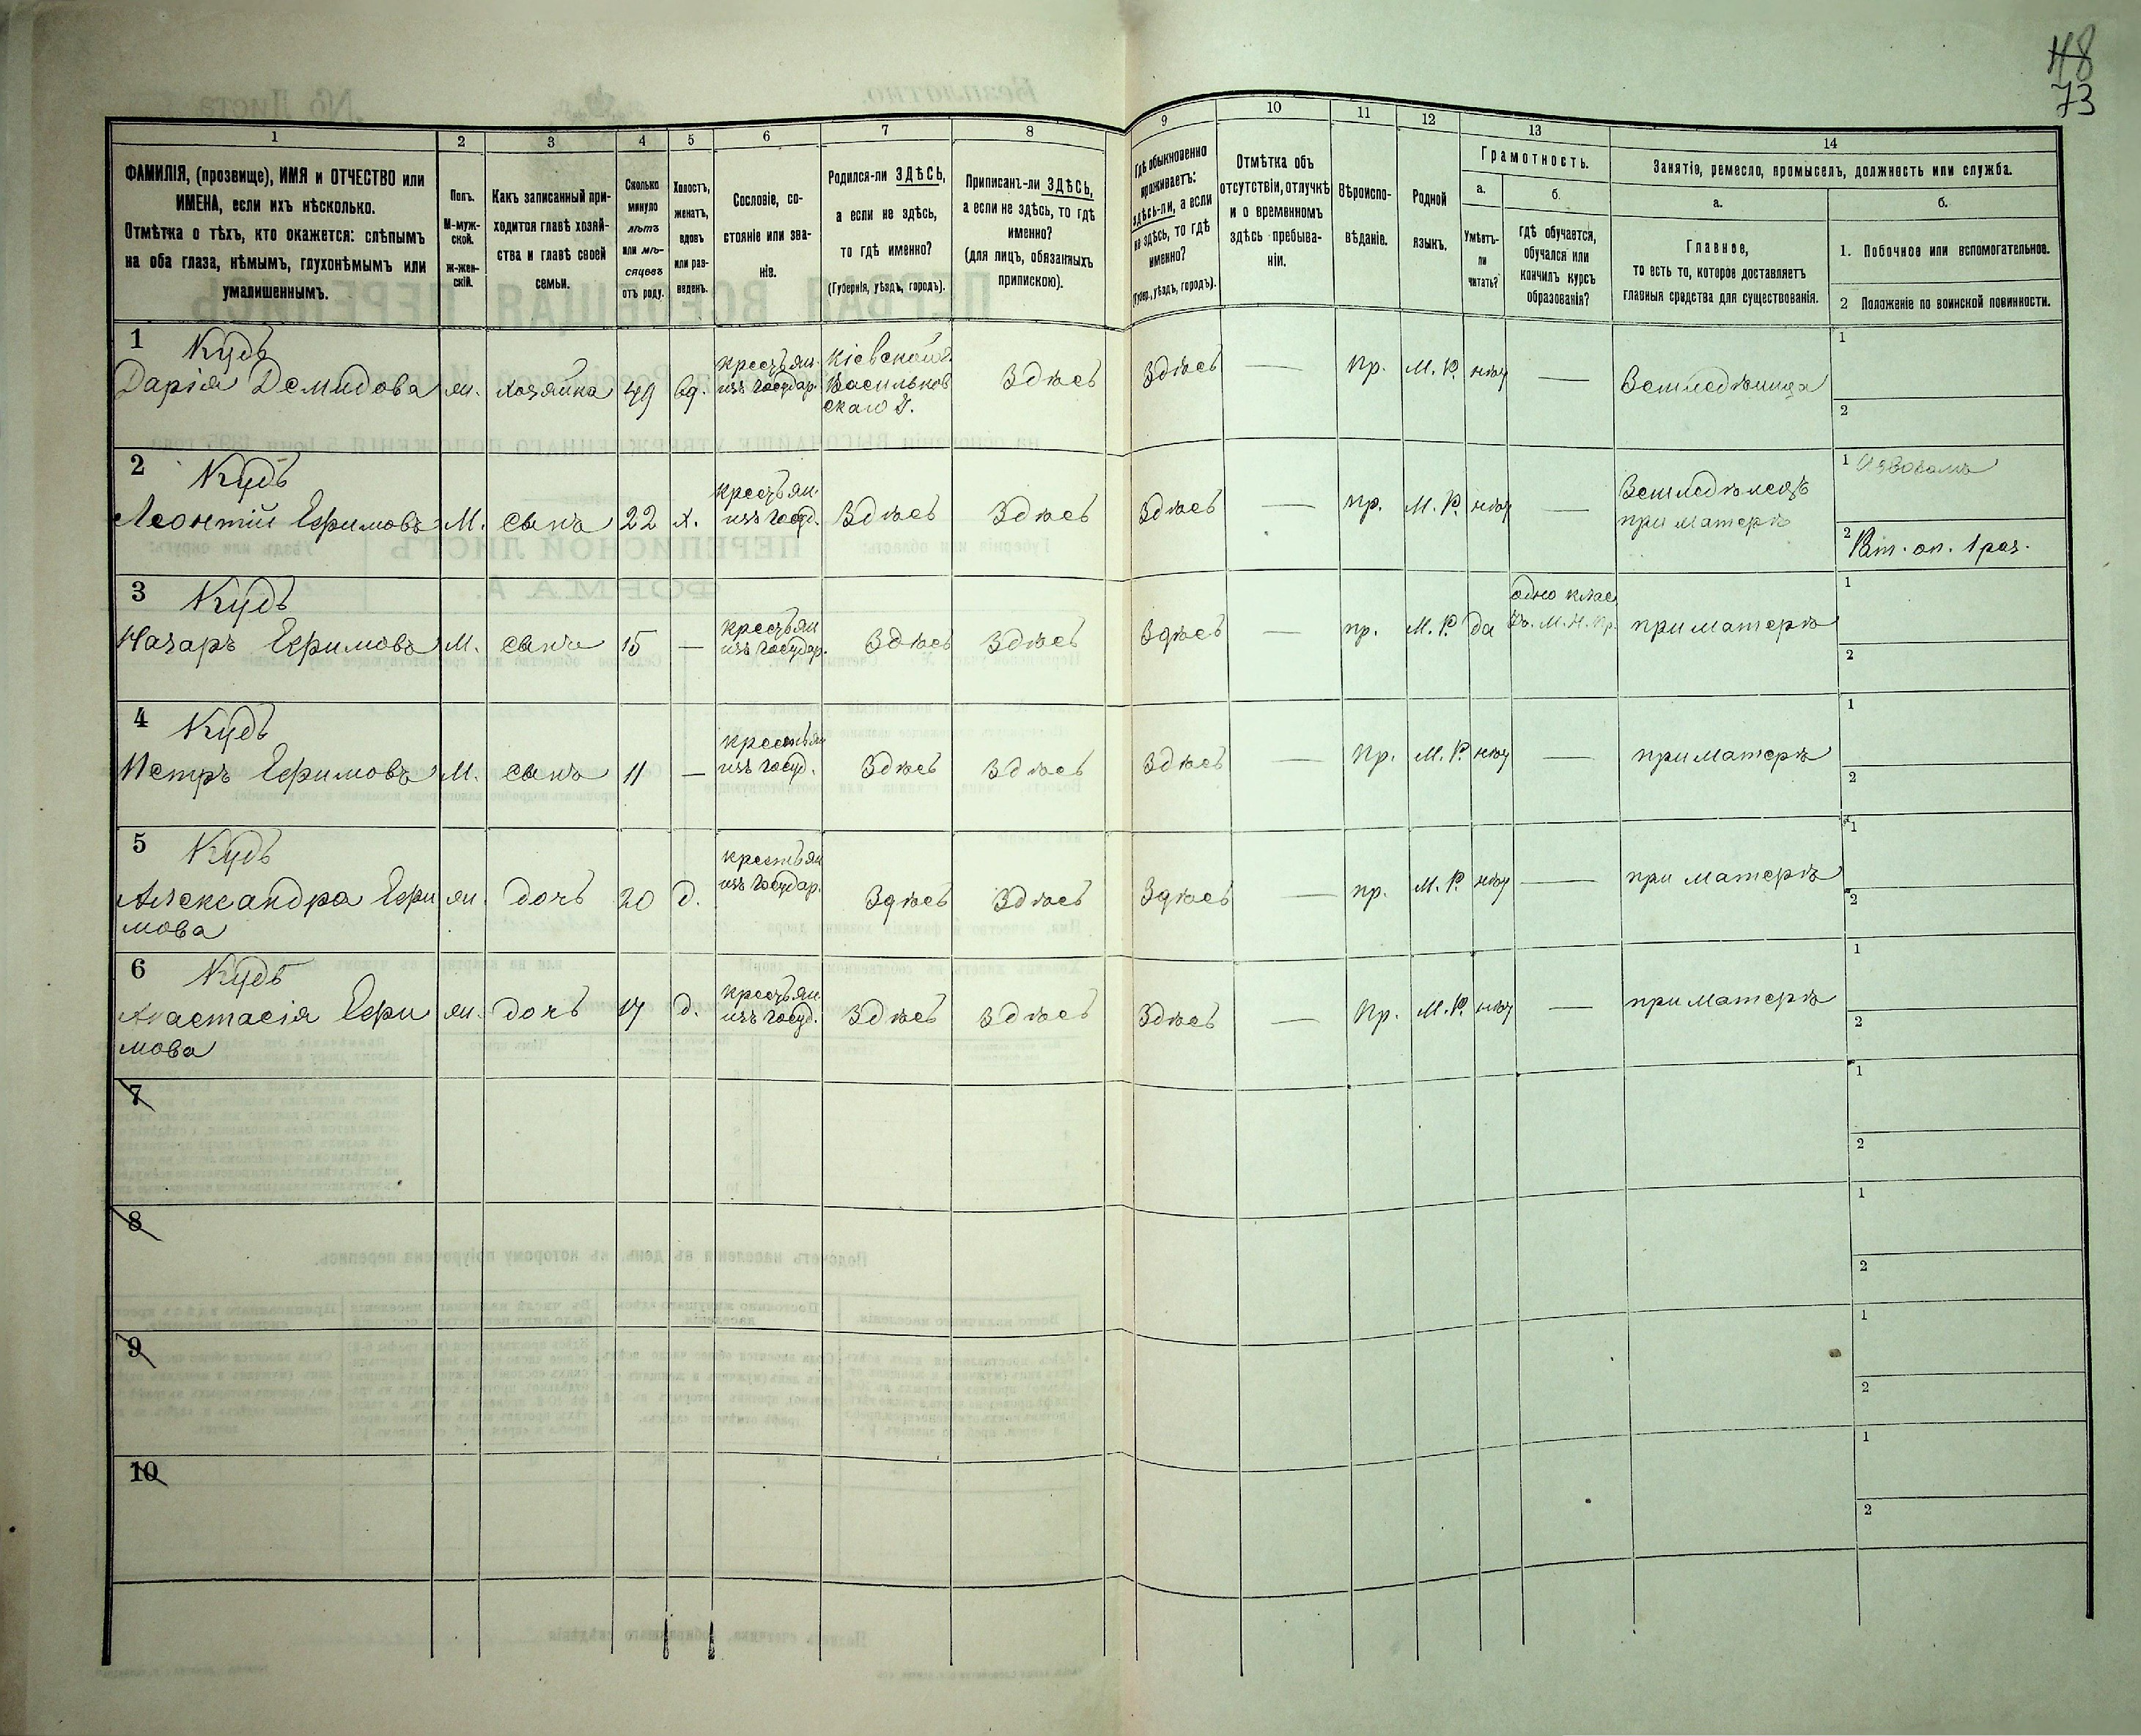 48
73
1
2
3
4
5
6
7
8
9
10
11
12
13
14
ФАМИЛІЯ, (прозвище), ИМЯ и ОТЧЕСТВО или
ИМЕНА, если ихъ нѣсколько.
Отмѣтка о тѣхъ, кто окажется: слѣпымъ
на оба глаза, нѣмымъ, глухонѣмымъ или
умалишеннымъ.
Полъ.
М-муж-
ской.
ж-жен-
скій.
Какъ записанный при-
ходится главѣ хозяй-
ства и главѣ своей
семьи.
Сколько
минуло
лѣтъ
или мѣ-
сяцевъ
отъ роду.
Холостъ,
женатъ,
вдовъ
или раз-
веденъ.
Сословіе, со-
стояніе или зва-
ніе.
Родился-ли ЗДѢСЬ,
а если не здѣсь,
то гдѣ именно?
(Губернія, уѣздъ, городъ).
Приписанъ-ли ЗДѢСЬ,
а если не здѣсь, то гдѣ
именно?
(для лицъ, обязанныхъ
припискою).
Гдѣ обыкновенно
проживаетъ:
здѣсь-ли, а если
не здѣсь, то гдѣ
именно?
(Губер., уѣздъ, городъ).
Отмѣтка объ
отсутствіи, отлучкѣ
и о временномъ
здѣсь пребыва-
ніи.
Вѣроиспо-
вѣданіе.
Родной
языкъ.
Грамотность.
а.
Умѣетъ-
ли
читать?
б.
гдѣ обучается,
обучался или
кончилъ курсъ
образованія?
Занятіе, ремесло, промыселъ, должность или служба.
а.
Главное,
то есть то, которое доставляетъ
главныя средства для существованія.
б.
1. Побочное или вспомогательное.
2 Положеніе по воинской повинности.
1
Кудь
Дарія Демидова
ж.
хозяйка
49
вд.
крестьян.
изъ государ.
Кіевской г.
Васильков
скаго у.
Здѣсь
Здѣсь
—
пр.
М. Р.
нѣт
—
Земледѣлица
1
2
2
Кудь
Леонтій Ефимовъ
М.
сынъ
22
х.
крестьян.
изъ госуд.
Здѣсь
Здѣсь
Здѣсь
—
пр.
М. Р.
нѣт
—
Земледѣлецъ
при матерѣ
1 Извозомъ
2 Рат. оп. 1 раз.
3
Кудь
Назаръ Ефимовъ
М.
сынъ
15
—
крестьян
изъ государ.
Здѣсь
Здѣсь
Здѣсь
—
пр.
М. Р.
да
одно клас
М. Н. Пр.
при матерѣ
1
2
4
Кудь
Петръ Ефимовъ
М.
сынъ
11
—
крестьян
изъ госуд.
Здѣсь
Здѣсь
Здѣсь
—
пр.
М. Р.
нѣт
—
при матерѣ
1
2
5
Кудь
Александра Ефи
мова
ж.
дочь
20
д.
крестьян
изъ государ.
Здѣсь
Здѣсь
Здѣсь
—
пр.
М. Р.
нѣт
—
при матерѣ
1
2
6
Кудь
Анастасія Ефи
мова
ж.
дочь
17
д.
крестьян
изъ госуд.
Здѣсь
Здѣсь
Здѣсь
—
пр.
М. Р.
нѣт
—
при матерѣ
1
2
7
1
2
8
1
2
9
1
2
10
1
2